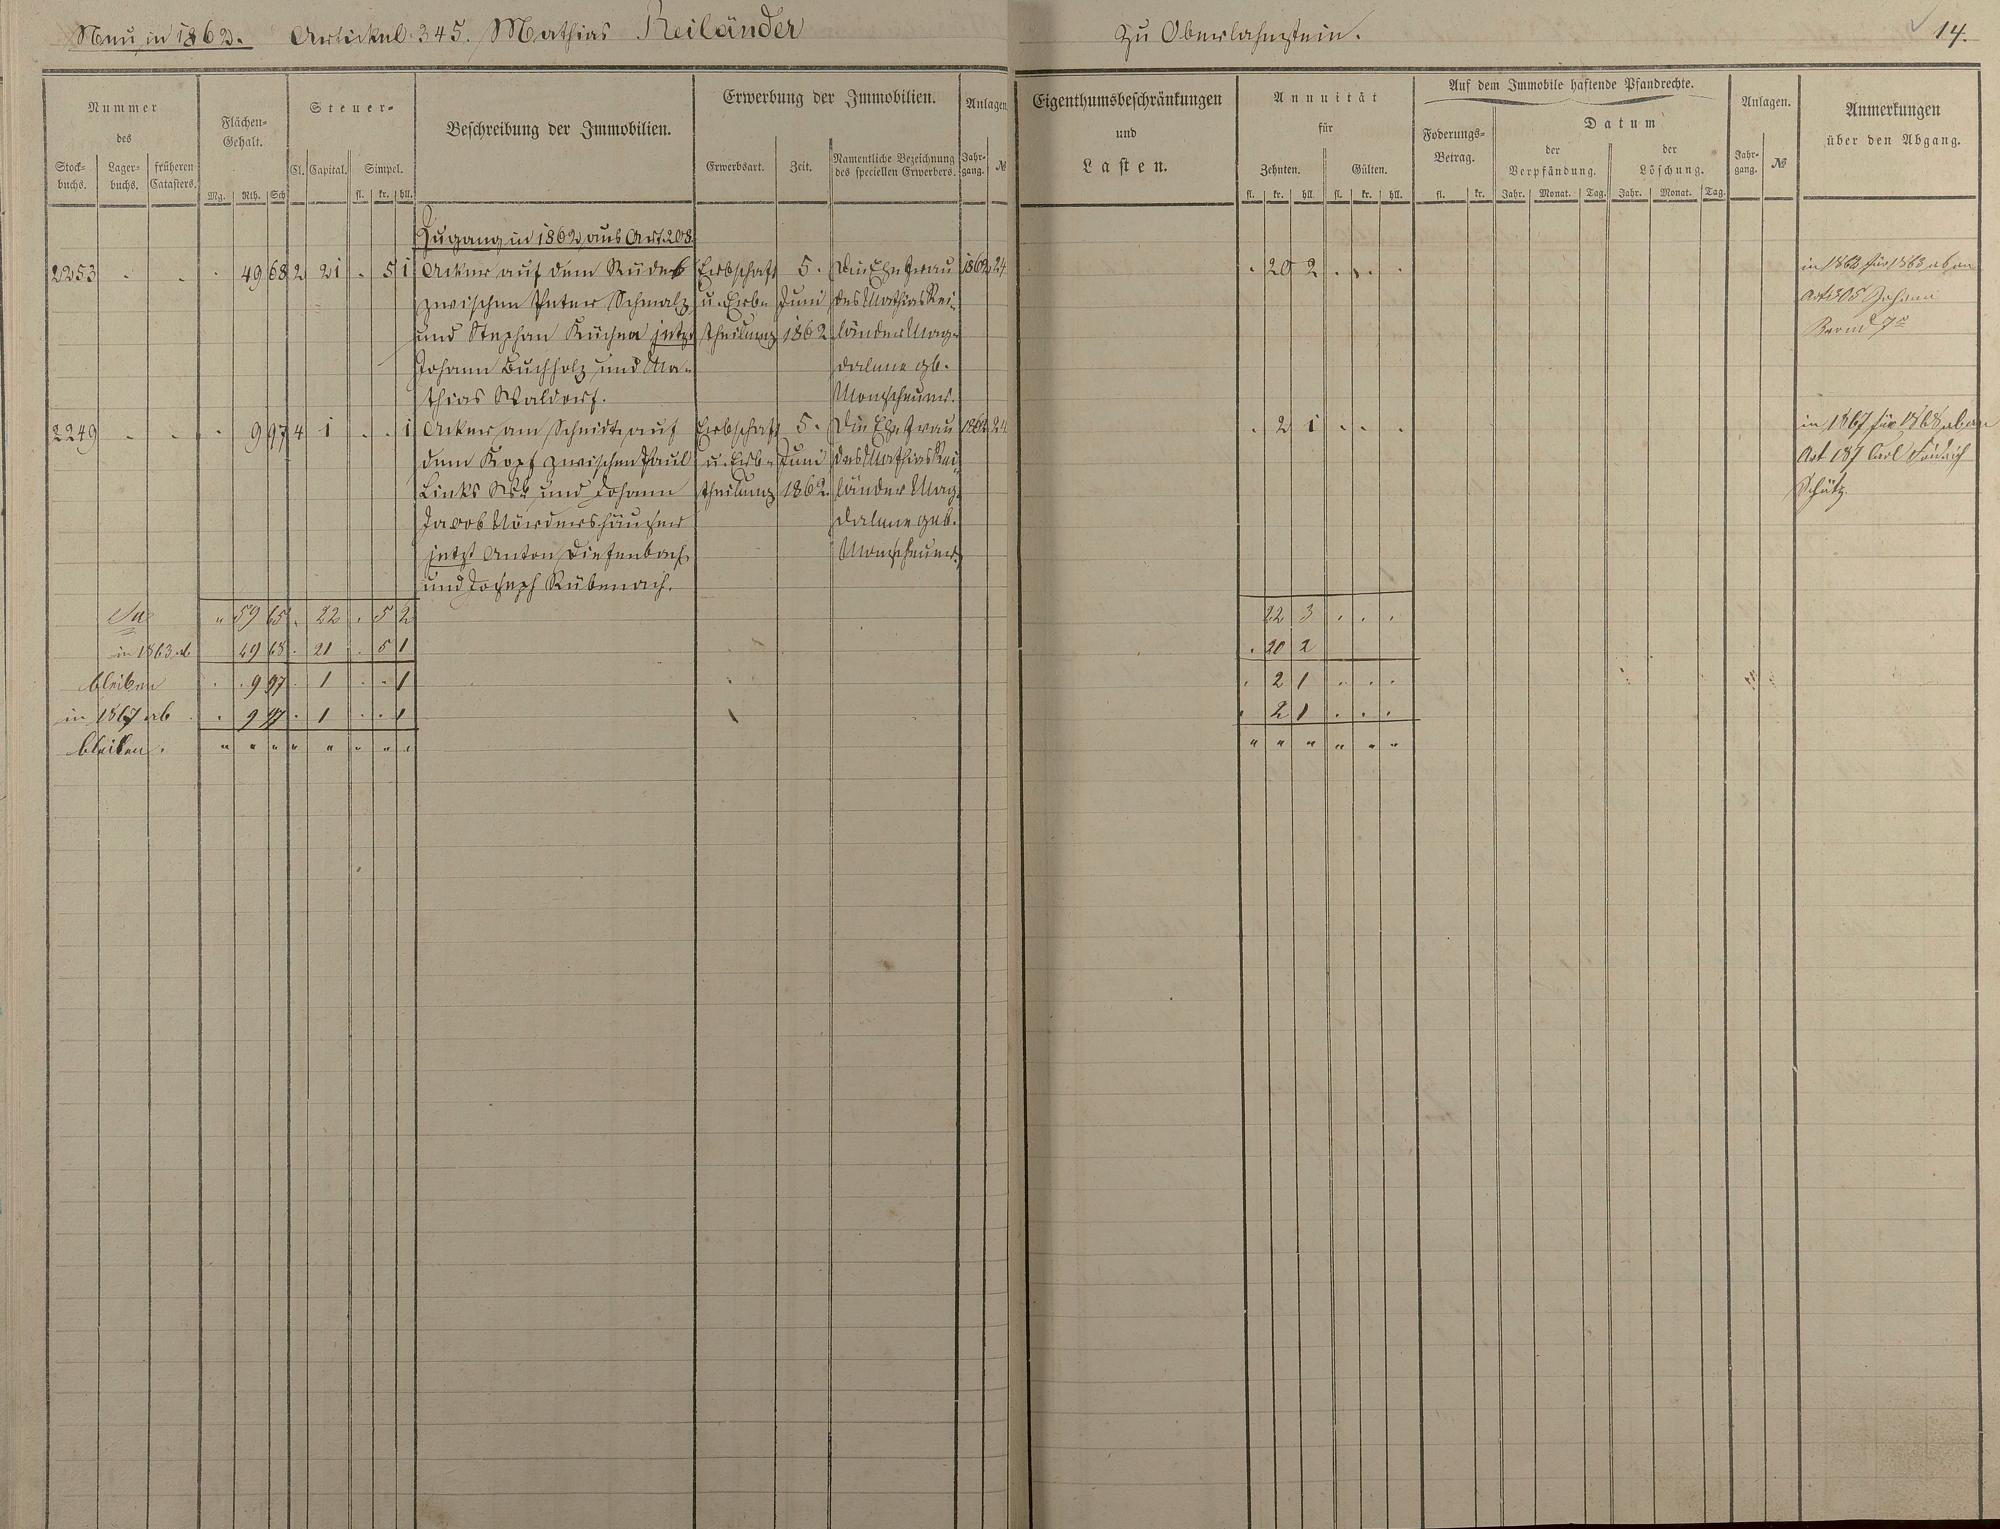 Neu in 1862. Artickel 345. Mathias Reiländer
zu Oberlahnstein. 14.
Nummer
des
Stock-
buchs.
Lager-
buchs.
früheren
Catasters.
Flächen-
Gehalt.
Mg. Rth. Sch
Steuer-
Cl. Capital. Simpel.
fl. kr. hll.
Beschreibung der Immobilien.
Erwerbung der Immobilien.
Erwerbsart. Zeit.
Namentliche Bezeichnung
des speciellen Erwerbers.
Anlagen
Jahr-
gang. №
Eigenthumsbeschränkungen
und
Lasten.
Annuität
für
Zehnten. Gülten.
fl. kr. hll. fl. kr. hll.
Auf dem Immobile haftende Pfandrechte.
Foderungs-
Betrag.
fl. kr.
Datum
der
Verpfändung.
der
Löschung.
Jahr. Monat. Tag. Jahr. Monat. Tag.
Anlagen.
Jahr-
gang. №
Anmerkungen
über den Abgang.
Zugang in 1862 aus Art. 208.
2253 . . . 49 68 2 21 . 5 1 Acker auf dem Erbschaft 5. Die Ehefrau 1862 24 . 20 2 . . . in 1862 für 1863 ab an
zwischen Peter Schmalz u. Erb- Juni des Mathias Rei- Art 305 Johann
und Stephan Küchen jetzt theilung 1862 länder Mag-
Johann Buchholz und Ma- dalene gb.
thias Waldorf.
2249 . . . 9 97 4 1 . . 1 Acker am Scheidt auf Erbschaft 5. Die Ehefrau 1862 24 . 2 1 . . . in 1867 für 1868 ab an
dem Kopf zwischen Paul u. Erb- Juni des Mathias Rei- Art 187 Carl Friedrich
Links und Johann theilung 1862. länder Mag- Schütz.
Jacob Nördershäuser dalene geb.
jetzt Anton Diefenbach
und Joseph Rübenach.
Sa „ 59 65 . 22 . 5 2 22 3 . . .
in 1863 ab 49 68 . 21 . 5 1 . 20 2
bleiben . . 9 97 . 1 . . 1 . 2 1 . . .
in 1867 ab . 9 97 . 1 . . 1 . 2 1 . . .
bleiben. „ „ „ „ „ „ „ „ „ „ „ „ „ „